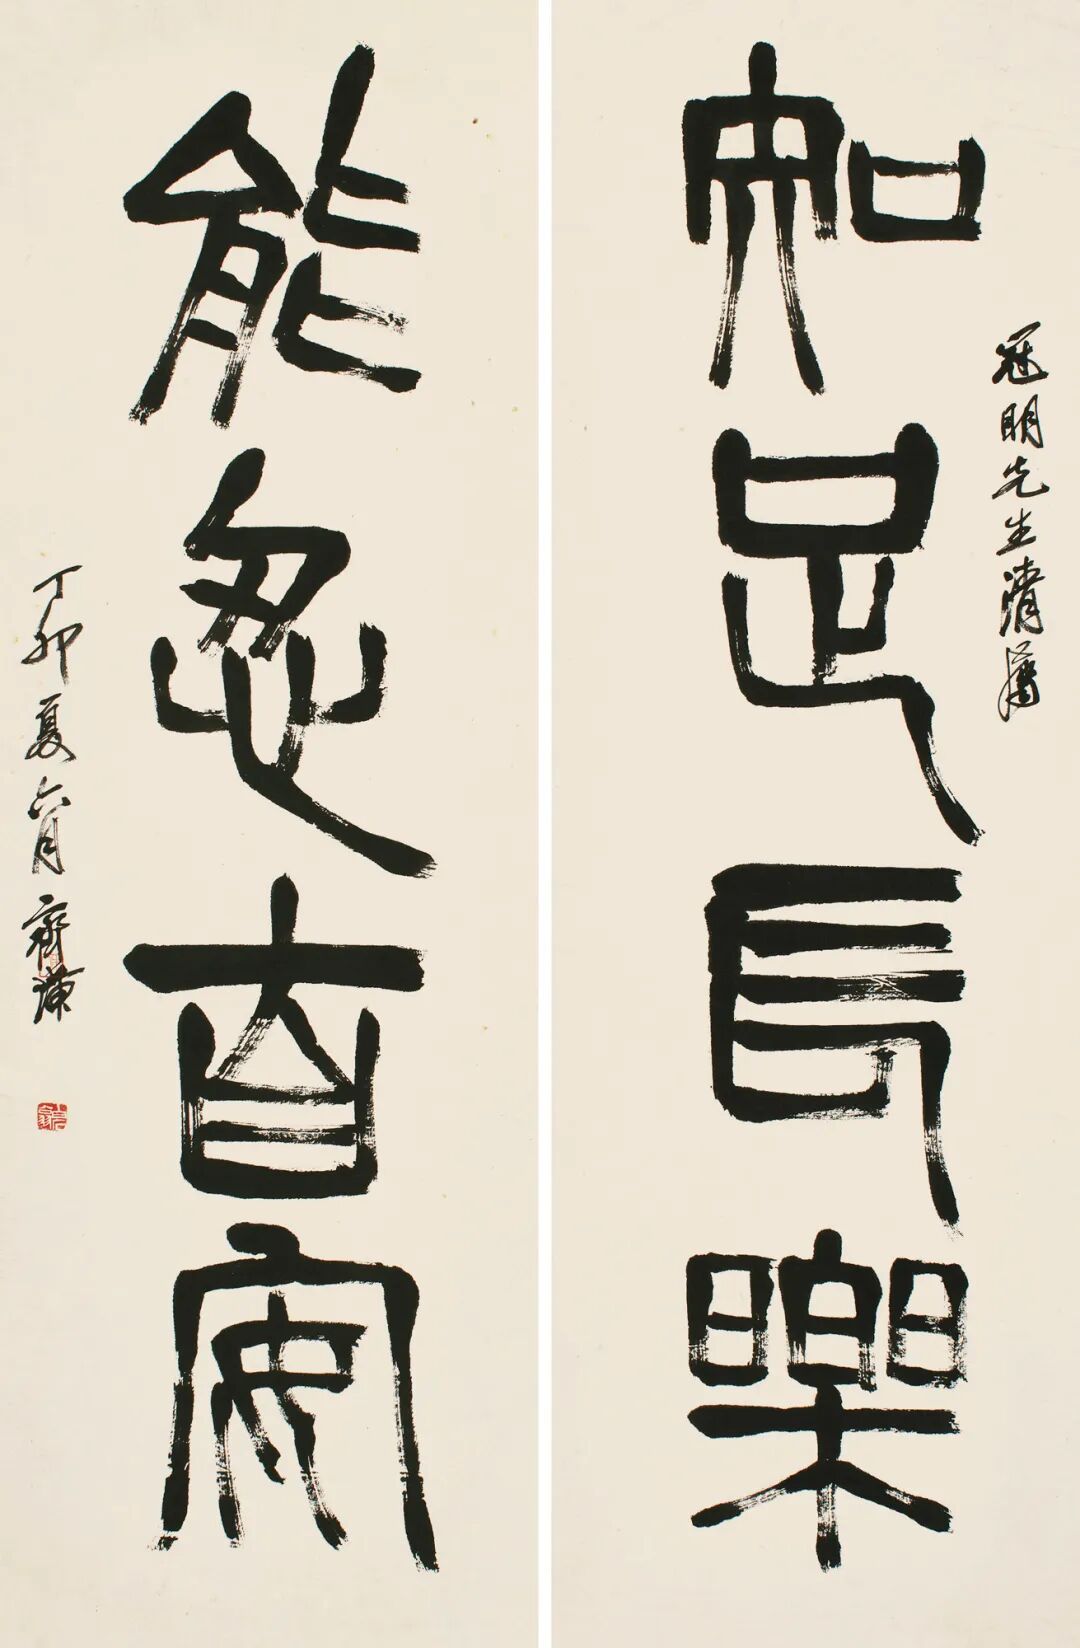 冠明先生清屬
知足長樂
能忍自安
丁卯夏六月齊璜